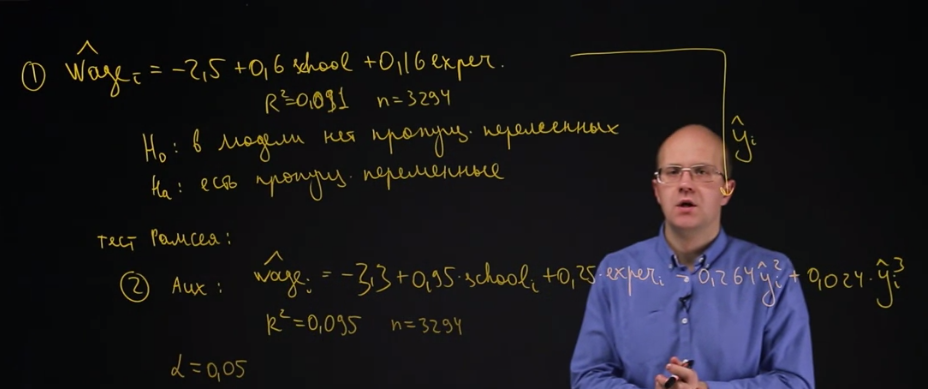 ① ŵage_i = -2,5 + 0,6 school + 0,16 exper.
R²=0,091 n=3294
H₀: в модели нет пропущ. переменных
Hₐ: есть пропущ. переменные
ŷ_i
тест Рамсея:
② Aux: ŵage_i = -3,3 + 0,95·school_i + 0,25·exper_i - 0,264 ŷ_i² + 0,024·ŷ_i³
R²=0,095 n=3294
α=0,05